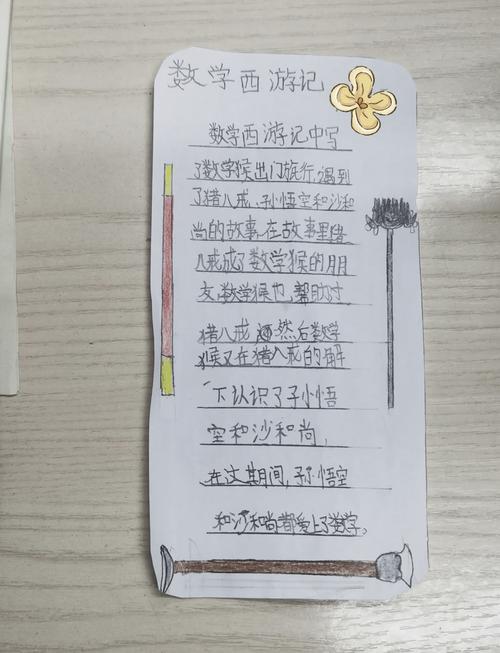 数学西游记
数学西游记中写
了数学猴出门旅行,遇到
了猪八戒,孙悟空和沙和
尚的故事,在故事里猪
八戒成了数学猴的朋
友,数学猴也,帮助过
猪八戒 然后数学
猴又在猪八戒的解
下认识了孙悟
空和沙和尚,
在这期间,孙悟空
和沙和尚都爱上了数学。